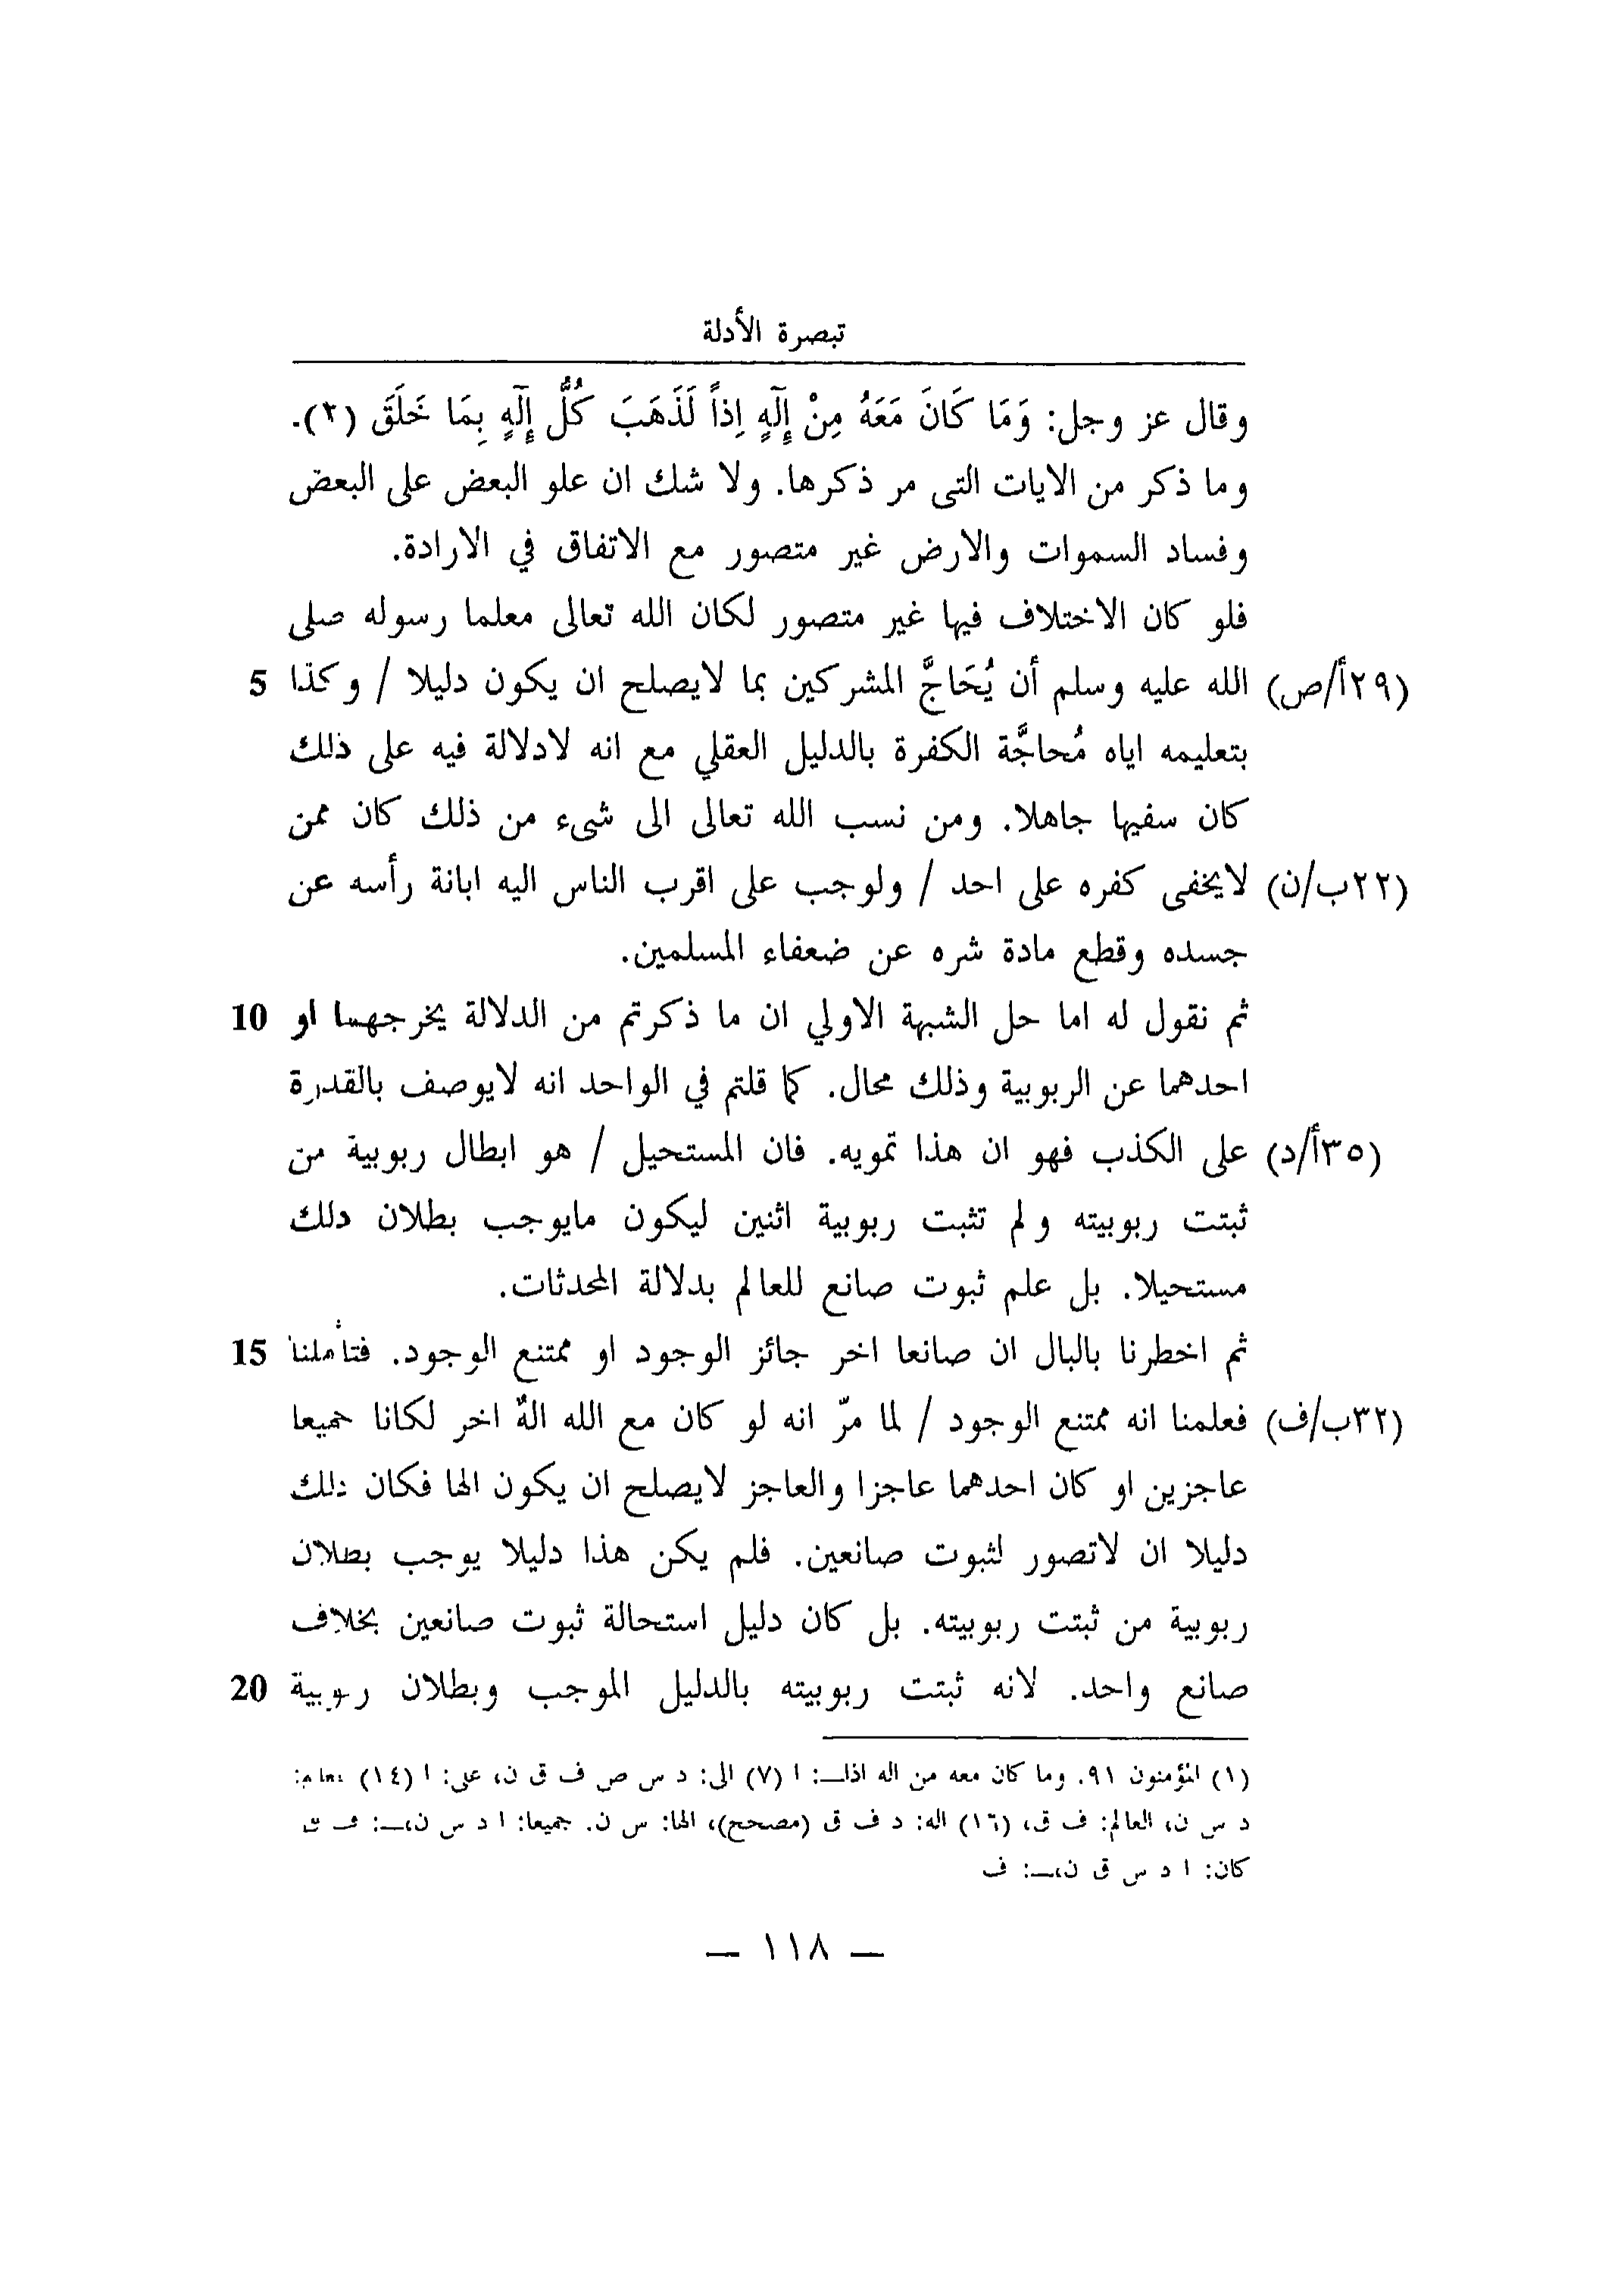 تبصرة الأدلة
وقال عز وجل: وَمَا كَانَ مَعَهُ مِنْ إِلَهٍ اِذاً لَذَهَبَ كُلُّ إِلَهٍ بِمَا خَلَقَ (٢).
وما ذكر من الايات التى مر ذكرها. ولا شك ان علو البعض على البعض
وفساد السموات والارض غير متصور مع الاتفاق في الارادة.
فلو كان الاختلاف فيها غير متصور لكان الله تعالى معلما رسوله صلى
(٢٩أ/ص) الله عليه وسلم أن يُحَاجَّ المشركين بما لايصلح ان يكون دليلا / وكذا 5
بتعليمه اياه مُحاجَّة الكفرة بالدليل العقلي مع انه لادلالة فيه على ذلك
كان سفيها جاهلا. ومن نسب الله تعالى الى شىء من ذلك كان ممن
(٢٢ب/ن) لايخفى كفره على احد / ولوجب على اقرب الناس اليه ابانة رأسه عن
جسده وقطع مادة شره عن ضعفاء المسلمين.
ثم نقول له اما حل الشبهة الاولي ان ما ذكرتم من الدلالة يخرجهما او 10
احدهما عن الربوبية وذلك محال. كما قلتم في الواحد انه لايوصف بالقدرة
(٣٥أ/د) على الكذب فهو ان هذا تمويه. فان المستحيل / هو ابطال ربوبية من
ثبتت ربوبيته ولم تثبت ربوبية اثنين ليكون مايوجب بطلان دلك
مستحيلا. بل علم ثبوت صانع للعالم بدلالة المحدثات.
ثم اخطرنا بالبال ان صانعا اخر جائز الوجود او ممتنع الوجود. فتأملنا 15
(٣٢ب/ف) فعلمنا انه ممتنع الوجود / لما مرّ انه لو كان مع الله الهٌ اخر لكانا جميعا
عاجزين او كان احدهما عاجزا والعاجز لايصلح ان يكون الها فكان ذلك
دليلا ان لاتصور لثبوت صانعين. فلم يكن هذا دليلا يوجب بطلان
ربوبية من ثبتت ربوبيته. بل كان دليل استحالة ثبوت صانعين بخلاف
صانع واحد. لانه ثبتت ربوبيته بالدليل الموجب وبطلان ربوبية 20
(١) المؤمنون ٩١. وما كان معه من اله اذاــ: ا (٧) الى: د س ص ف ق ن، على: ا (١٤) للعالم:
د س ن، العالم: ف ق، (١٦) اله: د ف ق (مصحح)، الها: س ن. جميعا: ا د س ن،ــ: ف ق
كان: ا د س ق ن،ــ: ف
— ١١٨ —